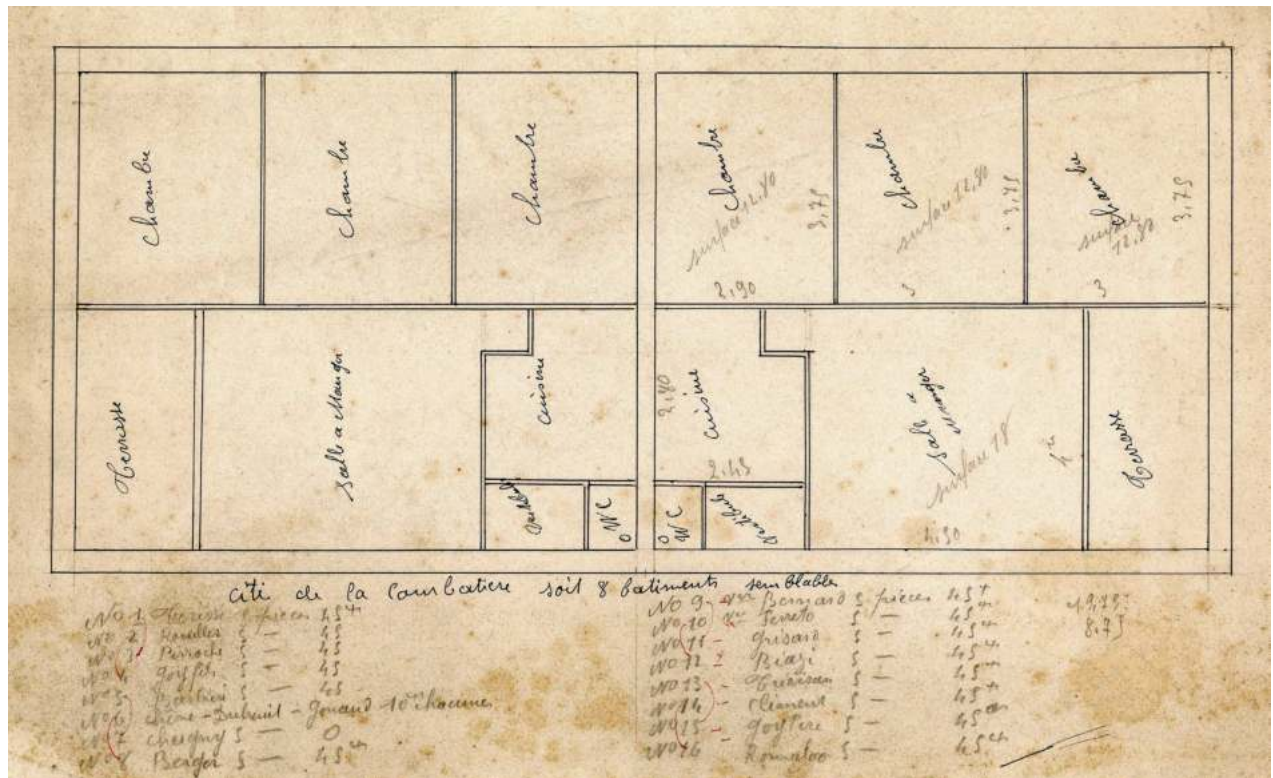 chambre
chambre
chambre
chambre
surface 12,80
3,75
2,90
chambre
surface 12,80
3,75
3
chambre
surface
12,80
3,75
3
Terrasse
Salle a Manger
cuisine
Vestibule
WC
O
2,80
cuisine
2,45
O WC
Vestibule
Salle a
manger
surface 18
4,50
Terrasse
cité de la Combatiere soit 8 batiments semblable
No 1 5 pieces 45
No 2 5 - 45
No 3 Perroche 5 - 45
No 4 5 - 45
No 5 5 - 45
No 6 - Dubreuil - Gonand 10 chacune
No 7 chesgny 5 - 0
No 8 Berger 5 - 45
No 9 - Bernard 5 pieces 45
No 10 Ferreto 5 - 45
No 11 - Grisard 5 - 45
No 12 - Biazi 5 - 45
No 13 - 5 - 45
No 14 - Clement 5 - 45
No 15 - 5 - 45
No 16 5 - 45
19,75
8,75